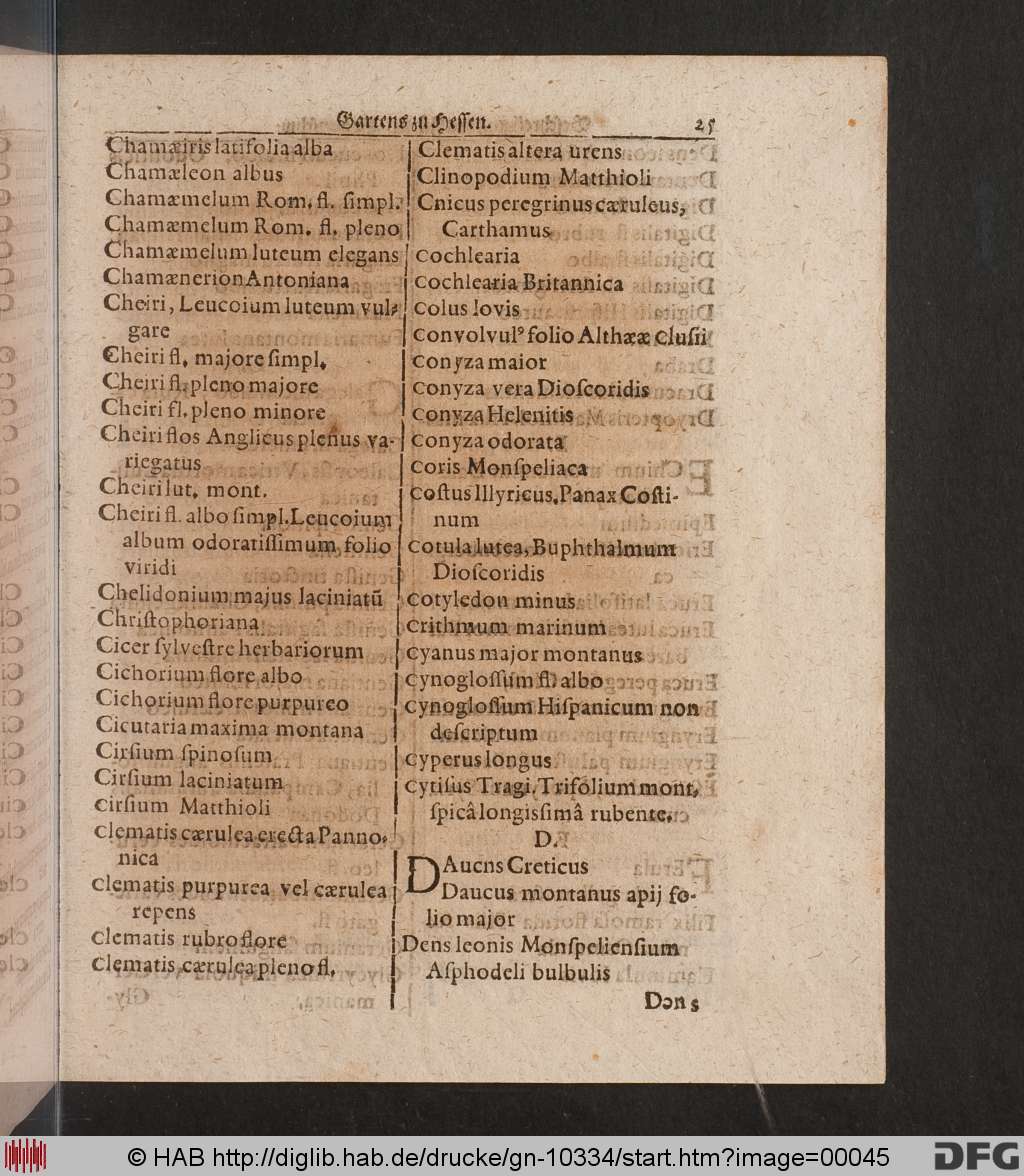 Gartens zu Hessen. 25
Chamæiris latifolia alba
Chamæleon albus
Chamæmelum Rom. fl. ſimpl.
Chamæmelum Rom. fl. pleno
Chamæmelum luteum elegans
Chamænerion Antoniana
Cheiri, Leucoium luteum vul-
gare
Cheiri fl. majore ſimpl.
Cheiri fl. pleno majore
Cheiri fl. pleno minore
Cheiri flos Anglicus plenus va-
riegatus
Cheiri lut. mont.
Cheiri fl. albo ſimpl. Leucoium
album odoratiſſimum folio
viridi
Chelidonium majus laciniatū
Chriſtophoriana
Cicer ſylveſtre herbariorum
Cichorium flore albo
Cichorium flore purpureo
Cicutaria maxima montana
Cirſium ſpinoſum
Cirſium laciniatum
Cirſium Matthioli
Clematis cærulea erecta Panno-
nica
Clematis purpurea vel cærulea
repens
Clematis rubro flore
Clematis cærulea pleno fl.
Clematis altera urens
Clinopodium Matthioli
Cnicus peregrinus cæruleus,
Carthamus
Cochlearia
Cochlearia Britannica
Colus Iovis
Convolvulꝰ folio Althææ Cluſii
Conyza maior
Conyza vera Dioſcoridis
Conyza Helenitis
Conyza odorata
Coris Monſpeliaca
Coſtus Illyricus, Panax Coſti-
num
Cotula lutea, Buphthalmum
Dioſcoridis
Cotyledon minus
Crithmum marinum
Cyanus major montanus
Cynogloſſum fl. albo
Cynogloſſum Hiſpanicum non
deſcriptum
Cyperus longus
Cytiſus Tragi, Trifolium mont.
ſpicâ longisſimâ rubente.
D.
DAucns Creticus
Daucus montanus apij fo-
lio major
Dens leonis Monſpelienſium
Aſphodeli bulbulis
Dens
© HAB http://diglib.hab.de/drucke/gn-10334/start.htm?image=00045
DFG